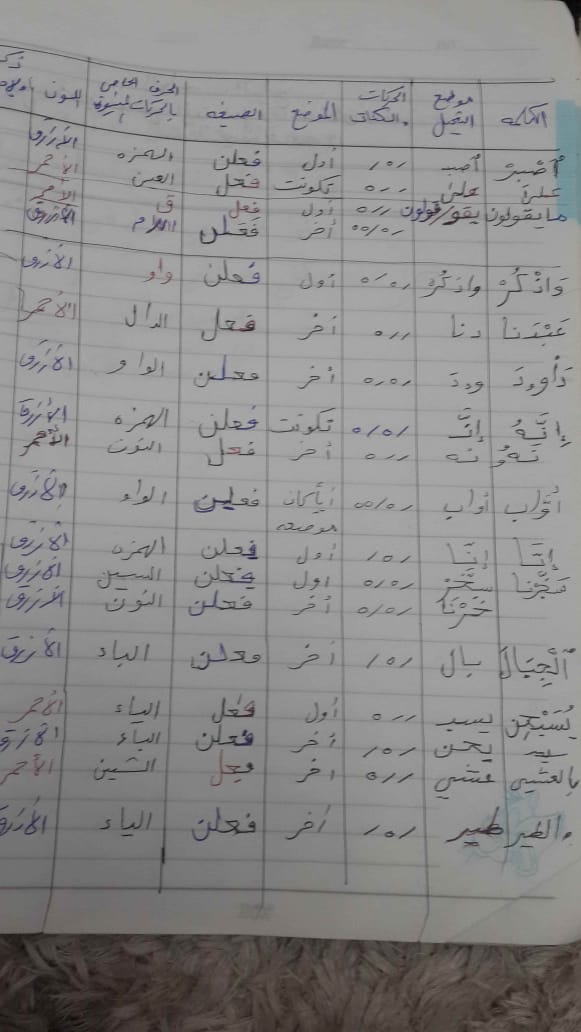 الكلمه موضع التجيل الحركات والسكنات الموضع الصيغه الحرف الخاص بالحركات اللون
اصبر أصب /ه/ أول فعلن الهمزه الأزرق
على على //ه تكونت فعل العين الأحمر
ما يقولون يقو/قولون //ه أول فعل ق الأحمر
/ه/ه أخر فعلن اللام الأزرق
وَاذْكُرْ واذكر /ه/ه أول فعلن واو الأزرق
عَبْدَنا دنا //ه أخر فعل الدال الأحمر
دَاوودَ وودَ /ه/ه أخر فعلن الواو الأزرق
إِنَّهُ إنَّ /ه/ه تكونت فعلن الهمزه الأزرق
نهُ نه //ه أخر فعل النون الأحمر
أوَّاب أواب /ه/ه أياكان موضعه فعلين الواو الأزرق
إنَّا إنَّا /ه/ أول فعلن الهمزه الأزرق
سَخَّرنا سخَّر /ه/ه أول فعلن السين الأزرق
خَرْنَا /ه/ه أخر فعلن النون الأزرق
اَلْجِبَالَ بال /ه/ أخر فعلن الباء الأزرق
يُسَبِّحْن يسب //ه أول فعل الياء الأحمر
يحن /ه/ أخر فعلن الباء الأزرق
بالعشيِ عشي //ه اخر فعل الشين الأحمر
والطير طير /ه/ أخر فعلن الياء الأزرق